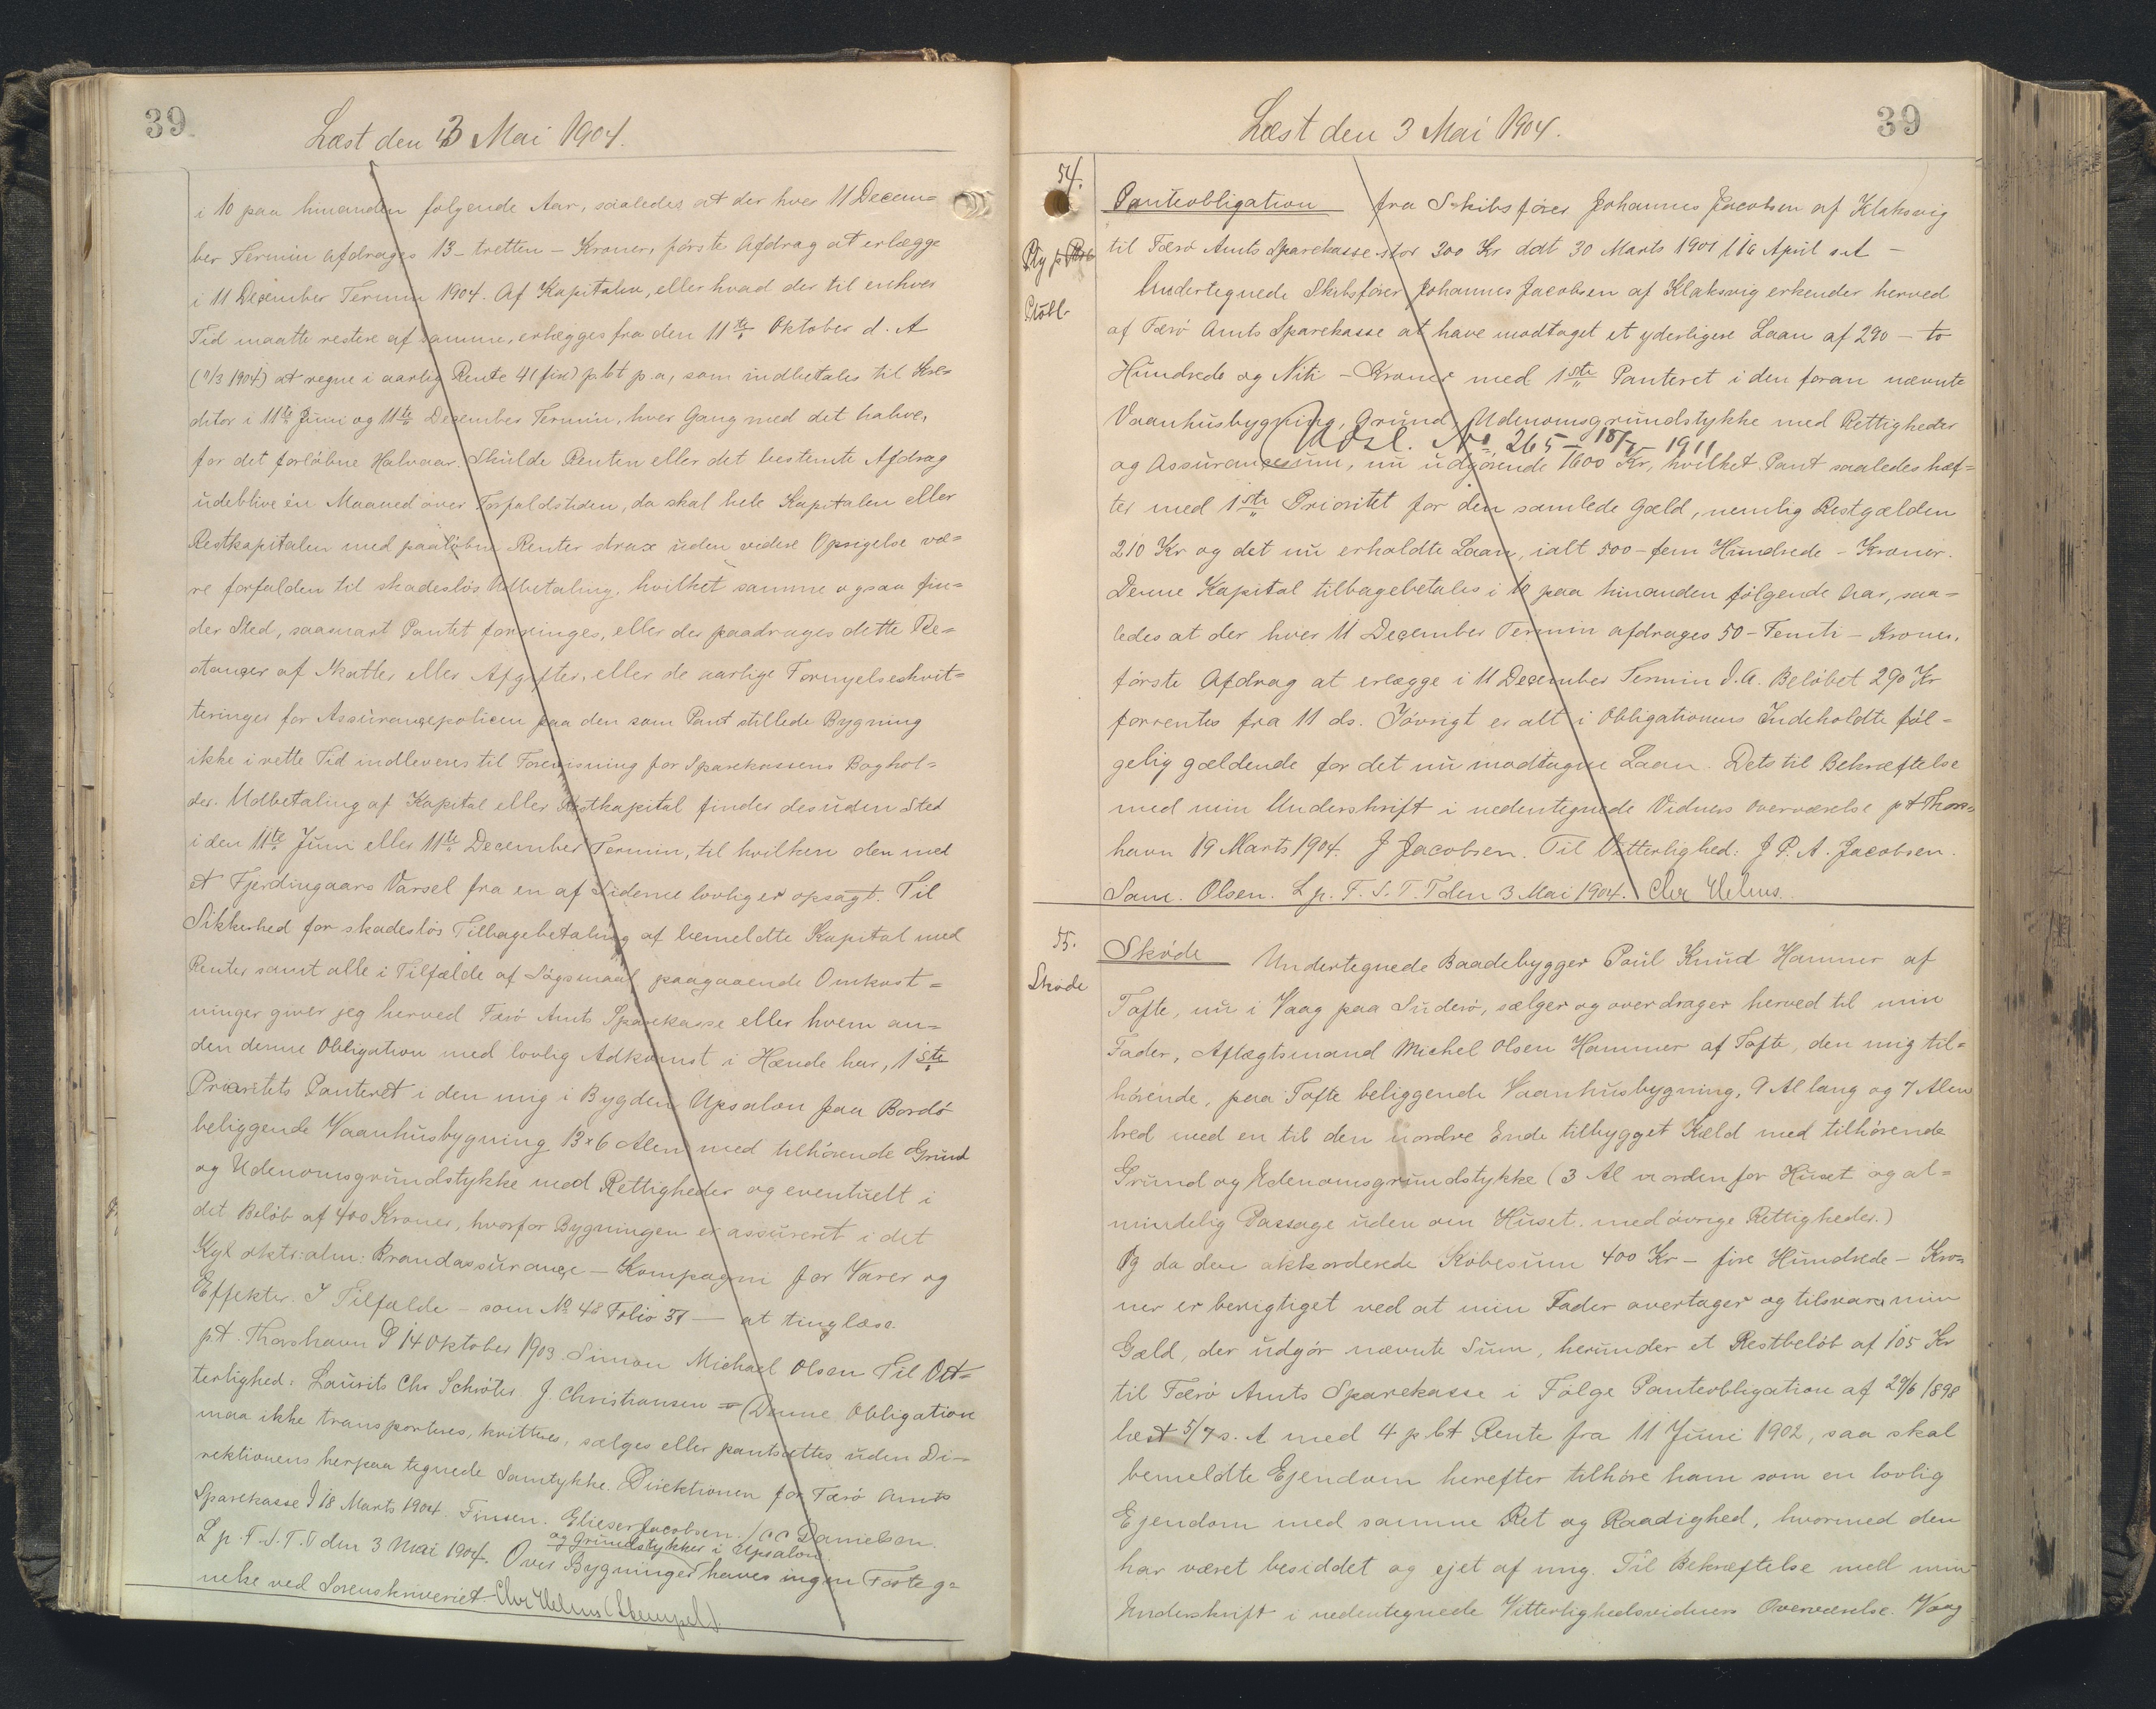 39
Læst den 3 Mai 1904.
i 10 paa hinanden følgende Aar, saaledes at der hver 11 Decem=
ber Termin afdrages 13 - tretten - Kroner, første Afdrag at erlægge
i 11 December Termin 1904. Af Kapitalen, eller hvad der til enhver
Tid maatte restere af samme, erlægges fra den 11te Oktober d. A
(11/3 1904) at regne i aarlig Rente 4 (fire) pbt p.a, som indbetales til Kre=
ditor i 11te Juni og 11te December Termin, hver Gang med det halve,
for det forløbne Halvaar. Skulde Renten eller det bestemte Afdrag
udeblive én Maaned over Forfaldstiden, da skal hele Kapitalen eller
Restkapitalen med paaløbne Renter strax uden videre Opsigelse væ=
re forfalden til skadesløs Udbetaling, hvilket samme ogsaa fin=
der Sted, saasnart Pantet forringes, eller der paadrages dette Re=
stancer af Skatter eller Afgifter, eller de aarlige Fornyelseskvit=
teringer for Assurancepolicen paa den som Pant stillede Bygning
ikke i rette Tid indleveres til Forevisning for Sparekassens Boghol=
der. Udbetaling af Kapital eller Restkapital finder desuden Sted
i den 11te Juni eller 11te December Termin, til hvilken den med
et Fjerdingaars Varsel fra en af Siderne lovlig er opsagt. Til
Sikkerhed for skadesløs Tilbagebetaling af bemeldte Kapital med
Renter samt alle i Tilfælde af Søgsmaal paagaaende Omkost=
ninger giver jeg herved Færø Amts Sparekasse eller hvem an=
den denne Obligation med lovlig Adkomst i Hænde har, 1ste
Prioritets Panteret i den mig i Bygden Upsalon paa Bordø
beliggende Vaanhusbygning 13x6 Alen med tilhørende Grund
og Udenomsgrundstykke med Rettigheder og eventuelt i
det Beløb af 400 Kroner, hvorfor Bygningen er assureret i det
Kgl oktr: alm: Brandassurance - Kompagni for Varer og
Effekter. I Tilfælde - som No 48 Folio 37 — at tinglæse.
p.t. Thorshavn d 14 Oktober 1903. Simon Michael Olsen Til Vit=
terlighed: Laurits Chr Schrøter J. Christiansen = (Denne Obligation
maa ikke transporteres, kvitteres, sælges eller pantsættes uden Di=
rektionens herpaa tegnede Samtykke. Direktionen for Færø Amts
Sparekasse d 18 Marts 1904. Finsen. Glieser Jacobsen. / Danielsen.
og Grundstykker i Upsalon
L p. F. S. T. T den 3 Mai 1904. Over Bygninger haves ingen Fasteg=
nelse ved Sorenskriveriet Chr Helms (Stempel).
39
Læst den 3 Mai 1904.
54.
Panteobligation fra Skibsfører Johannes Jacobsen af Klaksvig
til Færø Amts Sparekasse stor 300 Kr dat 30 Marts 1901 / 16 April s A -
Undertegnede Skibsfører Johannes Jacobsen af Klaksvig erkender herved
af Færø Amts Sparekasse at have modtaget et yderligere Laan af 290 - to
Hundrede og Niti - Kroner med 1ste Panteret i den foran nævnte
Vaanhusbygning, Grund, Udenomsgrundstykke med Rettigheder
Udsl. No 265 - 18/7 - 1911
og Assurancesum, nu udgørende 1600 Kr, hvilket Pant saaledes hæf=
ter med 1ste Prioritet for den samlede Gæld, nemlig Restgælden
210 Kr og det nu erholdte Laan, ialt 500 - fem Hundrede - Kroner.
Denne Kapital tilbagebetales i 10 paa hinanden følgende Aar, saa=
ledes at der hver 11 December Termin afdrages 50 - Femti - Kroner,
første Afdrag at erlægge i 11 December Termin d.A. Beløbet 290 Kr
forrentes fra 11 ds. Iøvrigt er alt i Obligationens Indeholdte føl=
gelig gældende for det nu modtagne Laan. Dets til Bekræftelse
med min Underskrift i nedentegnede Vidners Overværelse pt Thors=
havn 19 Marts 1904. J Jacobsen. Til Vitterlighed: J P. A. Jacobsen.
Sam. Olsen. L p. F. S. T. T den 3 Mai 1904. Chr Helms.
55.
Skøde
Skøde Undertegnede Baadebygger Poul Knud Hammer af
Tofte, nu i Vaag paa Suderø, sælger og overdrager herved til min
Fader, Aftægtsmand Michel Olsen Hammer af Tofte, den mig til=
hørende, paa Tofte beliggende Vaanhusbygning, 9 Al lang og 7 Alen
bred med en til den nordre Ende tilbygget Kæld med tilhørende
Grund og Udenomsgrundstykke (3 Al norden for Huset og al=
mindelig Passage uden om Huset. med øvrige Rettigheder.)
Og da den akkorderede Købesum 400 Kr - fire Hundrede - Kro=
ner er berigtiget ved at min Fader overtager og tilsvarer min
Gæld, der udgør nævnte Sum, herunder et Restbeløb af 105 Kr
til Færø Amts Sparekasse i Følge Panteobligation af 29/6 1898
læst 5/7 s. A med 4 pbt Rente fra 11 Juni 1902, saa skal
bemeldte Ejendom herefter tilhøre ham som en lovlig
Ejendom med samme Ret og Raadighed, hvormed den
har været besiddet og ejet af mig. Til Bekræftelse med min
Underskrift i nedentegnede Vitterlighedsvidners Overværelse. Vaag